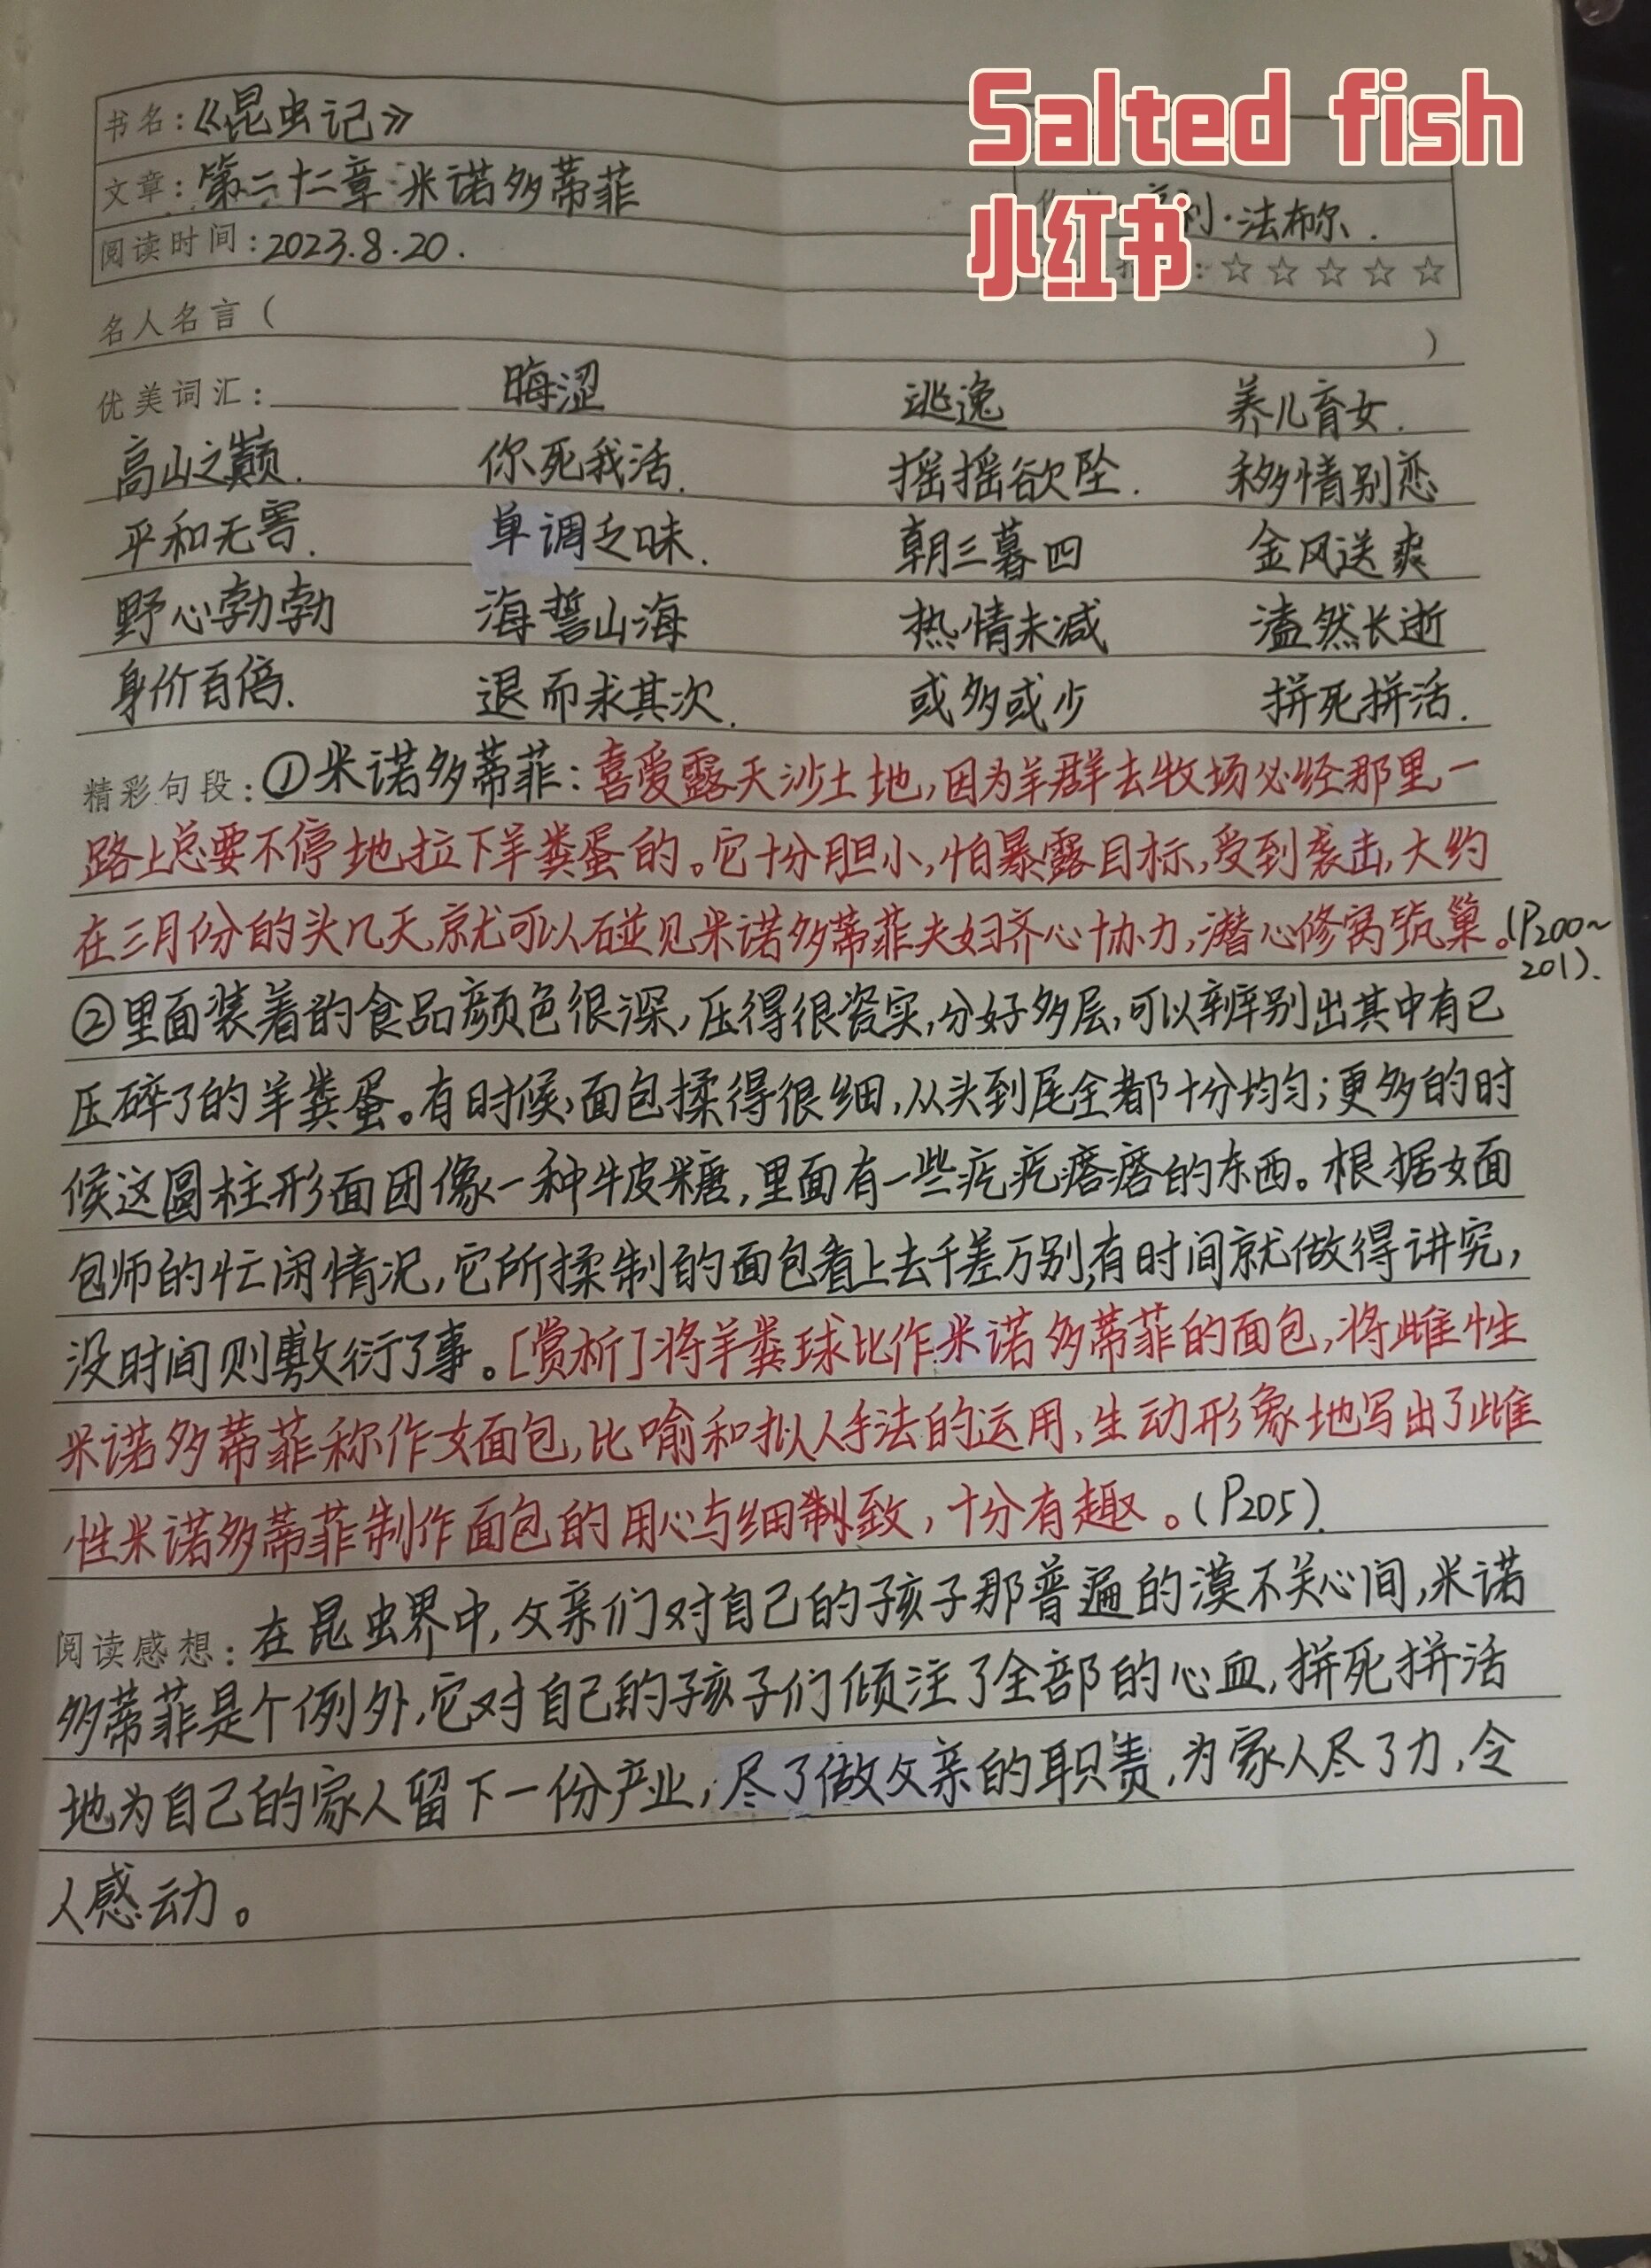 Salted fish
小红书
书名:《昆虫记》
文章:第二十二章 米诺多蒂菲
利·法布尔.
阅读时间:2023.8.20.
:☆☆☆☆☆
名人名言( )
优美词汇: 晦涩 逃逸 养儿育女.
高山之巅. 你死我活. 摇摇欲坠. 移情别恋
平和无害. 单调乏味. 朝三暮四 金风送爽
野心勃勃 海誓山海 热情未减 溘然长逝
身价百倍. 退而求其次. 或多或少 拼死拼活.
精彩句段:①米诺多蒂菲:喜爱露天沙土地,因为羊群去牧场必经那里,一
路上总要不停地拉下羊粪蛋的。它十分胆小,怕暴露目标,受到袭击,大约
在三月份的头几天,就可以碰见米诺多蒂菲夫妇齐心协力,潜心修窝筑巢。(P200~
201).
②里面装着的食品颜色很深,压得很瓷实,分好多层,可以辨别出其中有已
压碎了的羊粪蛋。有时候,面包揉得很细,从头到尾全都十分均匀;更多的时
候这圆柱形面团像一种牛皮糖,里面有一些疙疙瘩瘩的东西。根据女面
包师的忙闲情况,它所揉制的面包看上去千差万别,有时间就做得讲究,
没时间则敷衍了事。[赏析]将羊粪球比作米诺多蒂菲的面包,将雌性
米诺多蒂菲称作女面包,比喻和拟人手法的运用,生动形象地写出了雌
性米诺多蒂菲制作面包的用心与细制致,十分有趣。(P205).
阅读感想:在昆虫界中,父亲们对自己的孩子那普遍的漠不关心间,米诺
多蒂菲是个例外,它对自己的孩子们倾注了全部的心血,拼死拼活
地为自己的家人留下一份产业,尽了做父亲的职责,为家人尽了力,令
人感动。